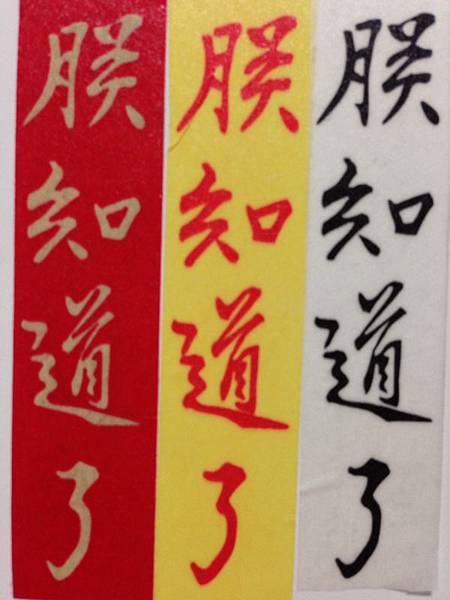 朕知道了
朕知道了
朕知道了